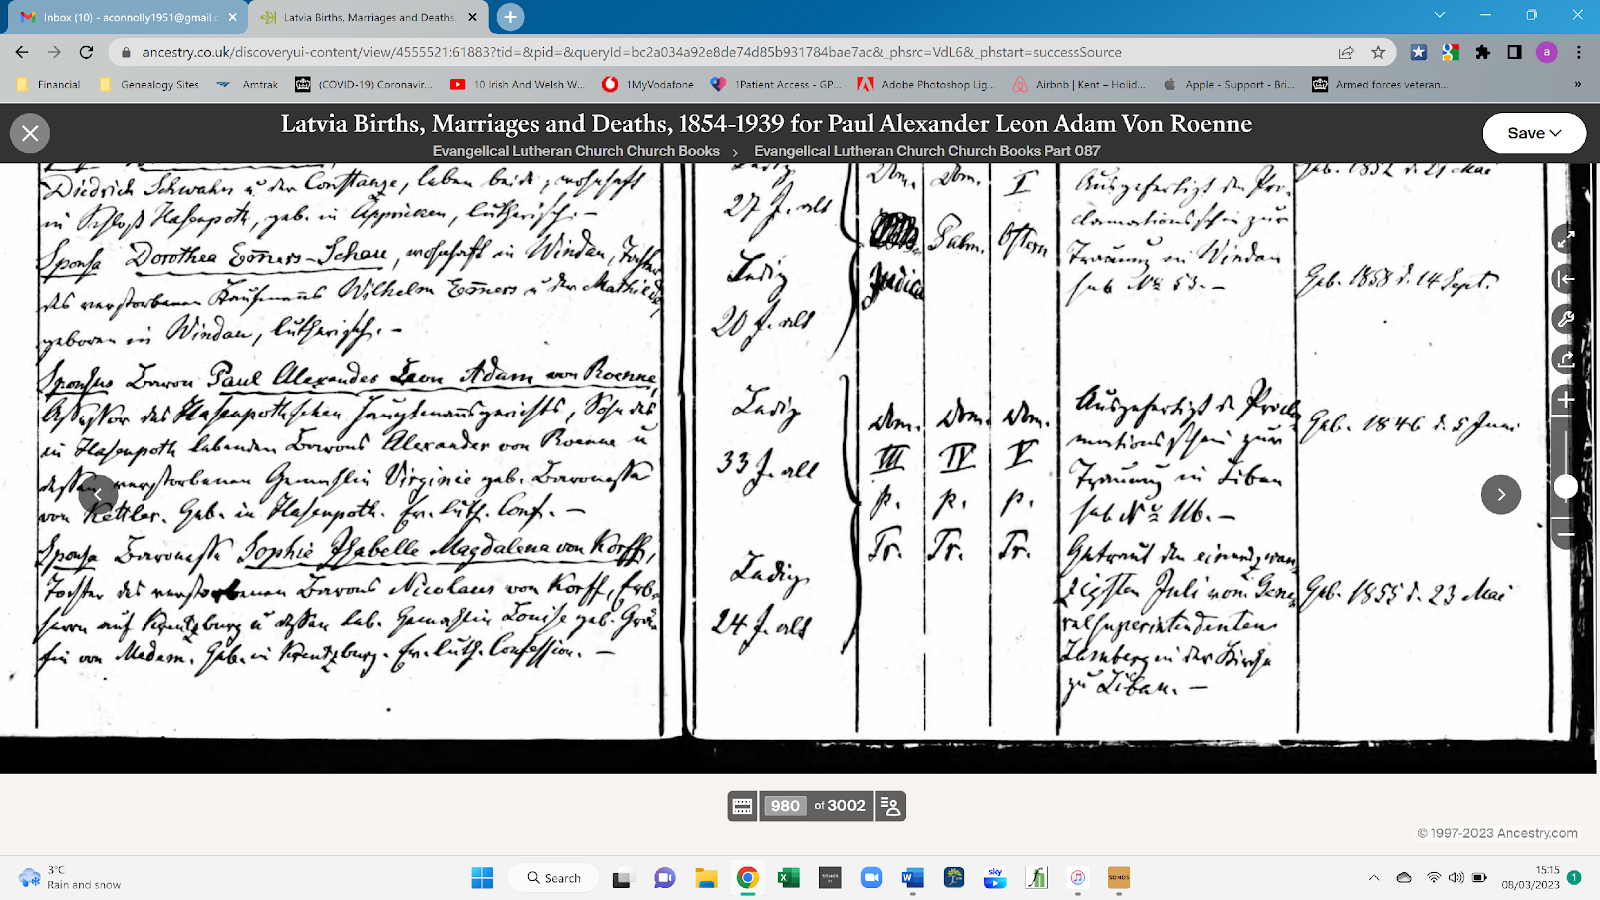 Inbox (10) - aconnolly1951@gmail.c
Latvia Births, Marriages and Deaths,
ancestry.co.uk/discoveryui-content/view/4555521:61883?tid=&pid=&queryId=bc2a034a92e8de74d85b931784bae7ac&_phsrc=VdL6&_phstart=successSource
a
Financial
Genealogy Sites
Amtrak
(COVID-19) Coronavir...
10 Irish And Welsh W...
1MyVodafone
1Patient Access - GP...
Adobe Photoshop Lig...
Airbnb | Kent – Holid...
Apple - Support - Bri...
Armed forces veteran...
»
Latvia Births, Marriages and Deaths, 1854-1939 for Paul Alexander Leon Adam Von Roenne
Evangelical Lutheran Church Church Books > Evangelical Lutheran Church Church Books Part 087
Save
Diedrich Schwahn u der Constanze, leben beide, wohnhaft
in Schloß Hasenpoth, geb. in Appricken, lutherisch. -
Sponsa Dorothea Schau, wohnhaft in Windau, Tochter
des verstorbenen Kaufmanns Wilhelm u der Mathilde,
geboren in Windau, lutherisch. -
Sponsus Baron Paul Alexander Leon Adam von Roenne,
Assessor des Hasenpothschen Hauptmannsgerichts, Sohn des
in Hasenpoth lebenden Barons Alexander von Roenne u
dessen verstorbenen Gemahlin Virginie geb. Baronesse
von Kettler. Geb. in Hasenpoth. Ev. luth. Conf. -
Sponsa Baronesse Sophie Isabelle Magdalena von Korff,
Tochter des verstorbenen Barons Nicolaus von Korff, Erb-
herrn auf Kreutzburg u dessen leb. Gemahlin Louise geb. Grä-
fin von Medem. Geb. in Kreutzburg. Ev. luth. Confession. -
Ledig
27 J. alt
Ledig
20 J. alt
Ledig
33 J. alt
Ledig
24 J. alt
Dom. Dom. I
Judica Palm. Ostern
Dom. Dom. Dom.
III IV V
p. p. p.
Tr. Tr. Tr.
Ausgefertigt den Pro-
clamationsschein zur
Trauung in Windau
sub № 53. -
Ausgefertigt d Procla-
mationsschein zur
Trauung in Libau
sub № 116. -
Getraut den einundzwan-
zigsten Juli vom Gene-
ralsuperintendenten
Lamberg in der Kirche
zu Libau. -
Geb. 1852 d. 21 Mai
Geb. 1858 d. 14 Sept.
Geb. 1846 d. 5 Juni
Geb. 1855 d. 23 Mai
980 of 3002
© 1997-2023 Ancestry.com
3°C
Rain and snow
Search
SONOS
sky
SONOS
15:15
08/03/2023
1